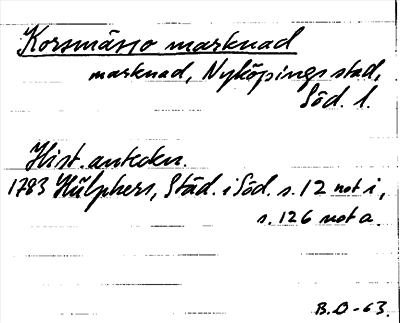 Korsmässo marknad
marknad, Nyköpings stad,
Söd. l.
Hist. anteckn.
1783 Hülphers, Städ. i Söd. s. 12 not i,
s. 126 not a.
B.O-63.